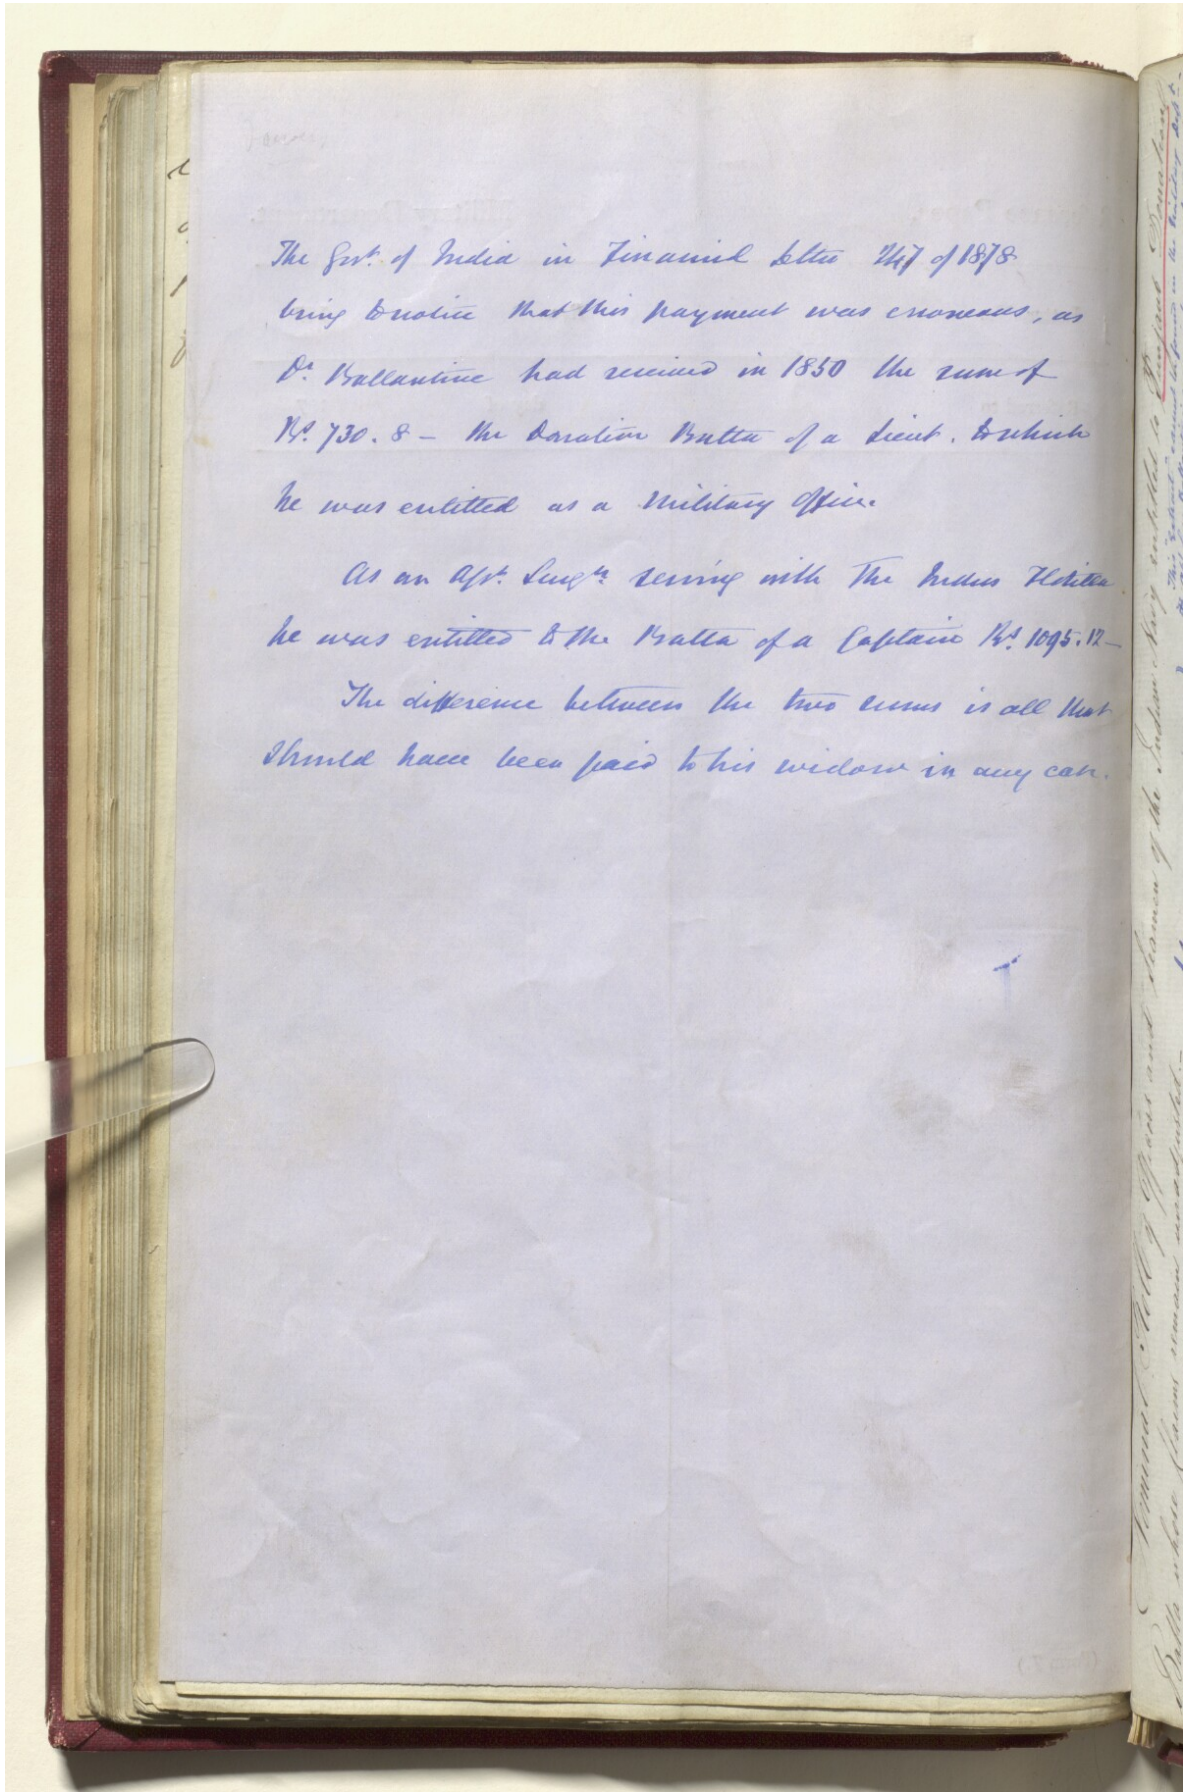 The Govt. of India in Financial Letter 247 of 1878
bring to notice that this payment was erroneous, as
Dr. Ballantine had received in 1850 the sum of
Rs. 730. 8 – the Donation Batta of a Lieut. to which
he was entitled as a Military Officer.
As an Asst. Surgn. serving with the Indus Flotilla
he was entitled to the Batta of a Captain Rs. 1095.12–
The difference between the two sums is all that
should have been paid to his widow in any case.
Nominal Roll of Officers and Seamen of the Indian Navy entitled to Punjaub Donation
Batta whose claims remain unadjusted.–